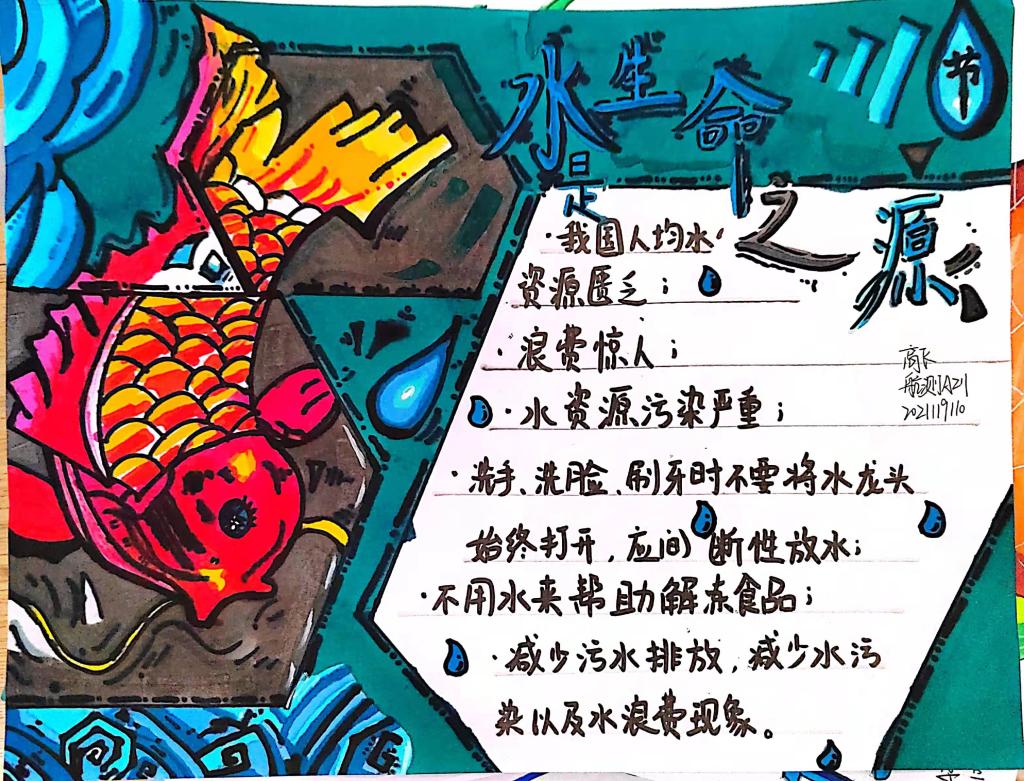 节
水是生命之源
·我国人均水
资源匮乏；
·浪费惊人；
·水资源污染严重；
·洗手、洗脸、刷牙时不要将水龙头
始终打开，应间断性放水；
·不用水来帮助解冻食品；
·减少污水排放，减少水污
染以及水浪费现象。
航测1A21
2021119110